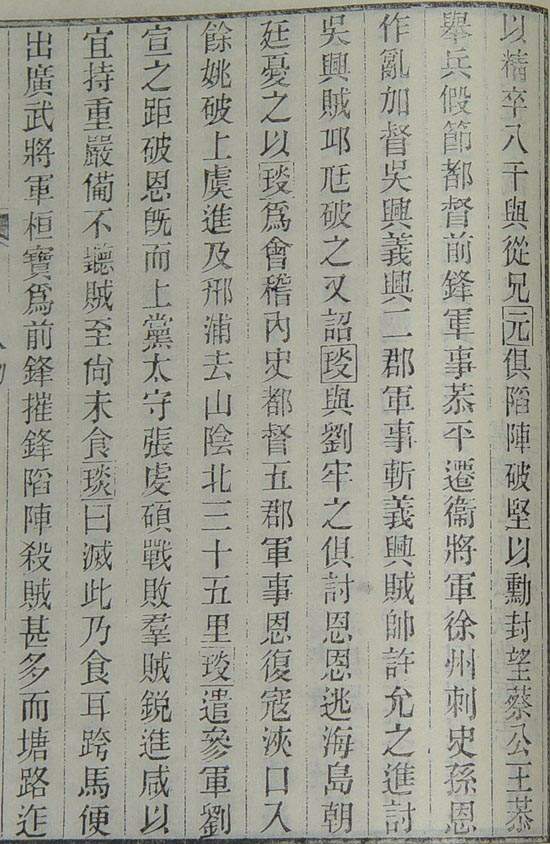 以精卒八千與從兄元俱陷陣破堅以勳封望蔡公王恭
舉兵假節都督前鋒軍事恭平遷衞將軍徐州刺史孫恩
作亂加督吳興義興二郡軍事斬義興賊帥許允之進討
吳興賊邱尫破之又詔琰與劉牢之俱討恩恩逃海島朝
廷憂之以琰爲會稽內史都督五郡軍事恩復寇浹口入
餘姚破上虞進及邢浦去山陰北三十五里琰遣參軍劉
宣之距破恩旣而上黨太守張虔碩戰敗羣賊銳進咸以
宜持重嚴備不聽賊至尙未食琰曰滅此乃食耳跨馬便
出廣武將軍桓寶爲前鋒摧鋒陷陣殺賊甚多而塘路迮